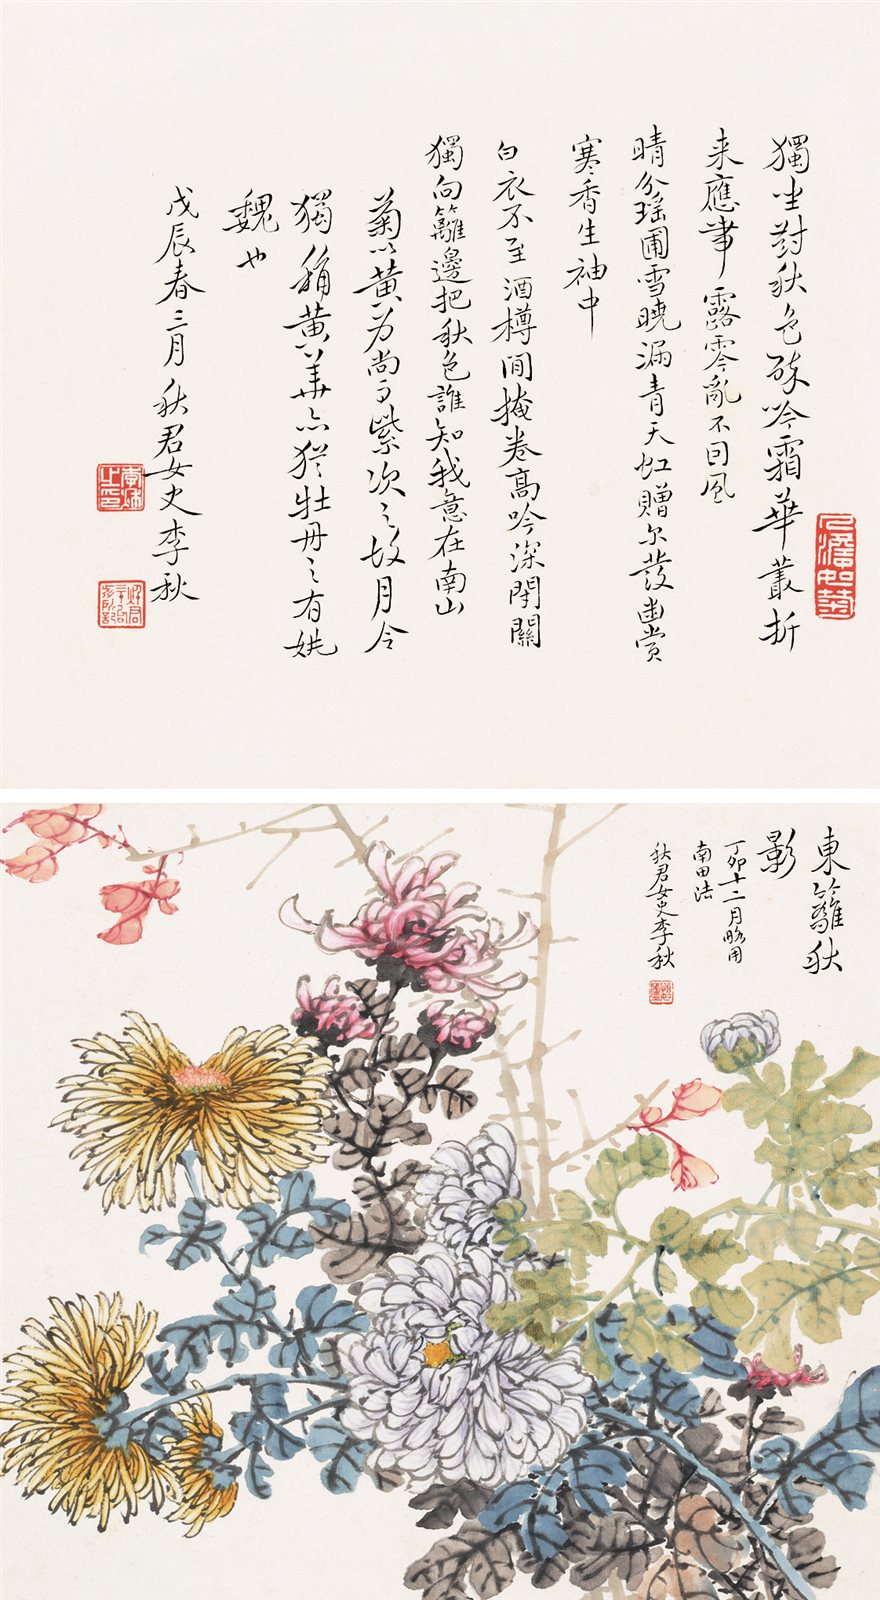 獨坐對秋色強吟霜華叢折
来應華露零亂不回風
晴分瑶圃雪曉漏青天虹贈尔發幽賞
寒香生袖中
白衣不至酒樽閒掩卷高吟深閉關
獨向籬邊把秋色誰知我意在南山
菊以黄为尚而紫次之故月令
獨稱黄華亦犹牡丹之有姚
魏也
戊辰春三月秋君女史李秋
東籬秋
影
丁卯十二月略用
南田法
秋君女史李秋